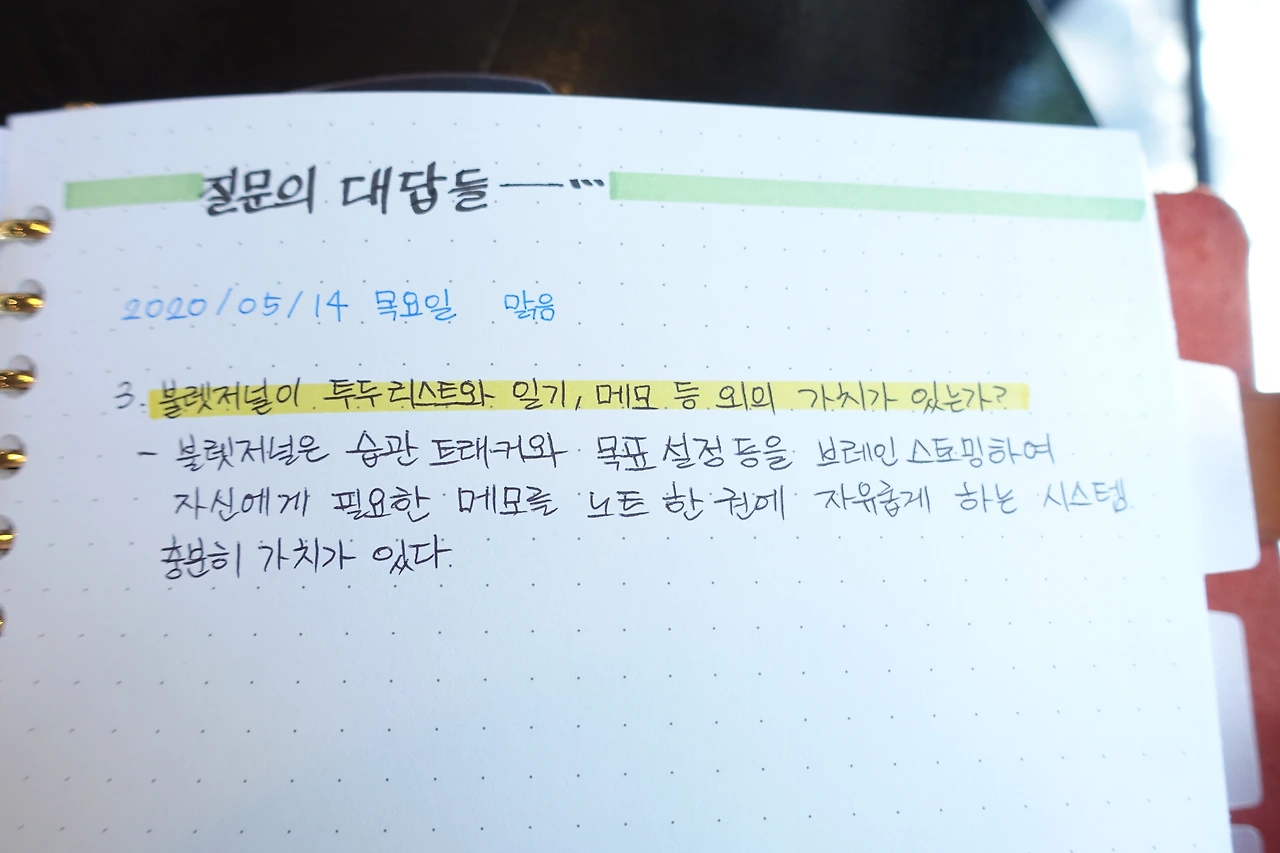 질문의 대답들 — ...
2020/05/14 목요일 맑음
3. 불렛저널이 투두리스트와 일기, 메모 등 외의 가치가 있는가?
- 불렛저널은 습관 트래커와 목표 설정 등을 브레인스토밍하여
자신에게 필요한 메모를 노트 한 권에 자유롭게 하는 시스템.
충분히 가치가 있다.